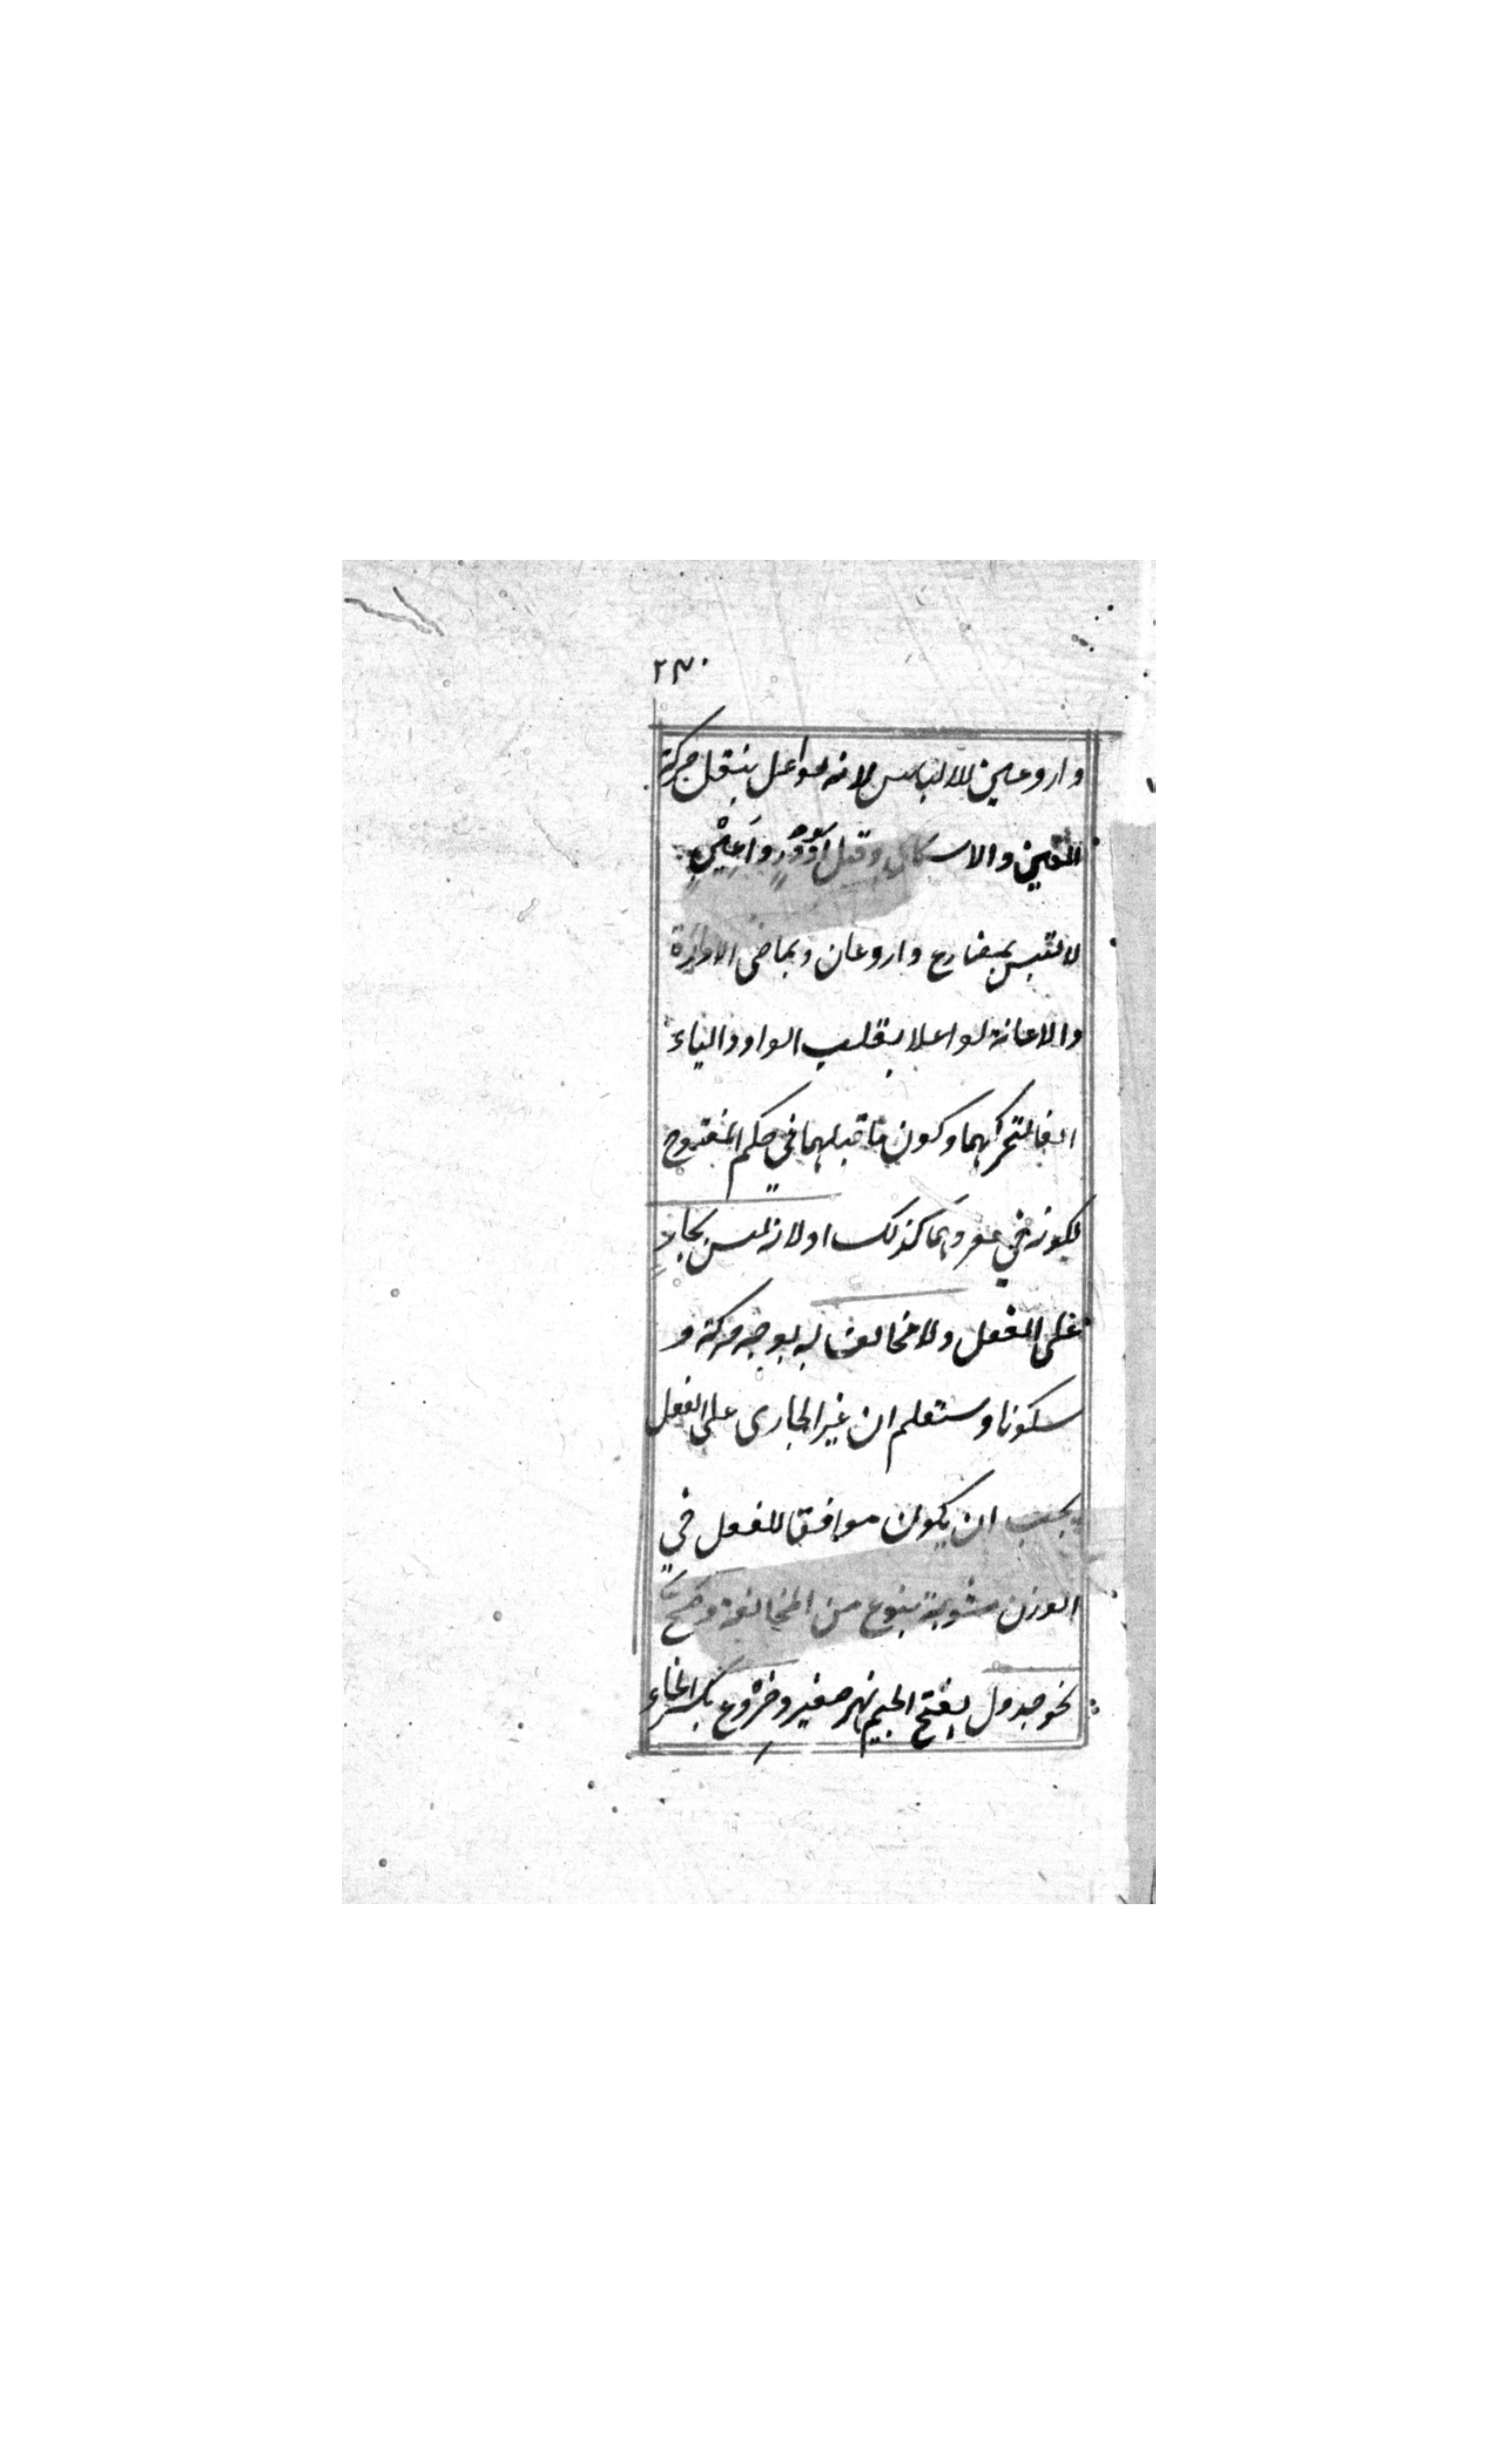 ٢٣٠
وادور وعين للالباس لانه لو اعل بنقل حركة
العين والاسكان وقيل أدْوُرٍ وأَعْيُنٍ
لالتبس بمضارع دار وعان وبماضي الادارة
والاعانة لو اعلا بقلب الواو والياء
الفا لتحركهما وكون ما قبلهما في حكم المفتوح
لكونه في مفردهما كذلك اولانه ليس بجارٍ
على الفعل ولا مخالف له بوجه حركة و
سكونا وستعلم ان غير الجارى على الفعل
يجب ان يكون موافقا للفعل في
الوزن مشوبة بنوع من المخالفة وصَحَّ
نحو جدول بفتح الجيم نهر صغير وخِرْوَع بكسر الخاء